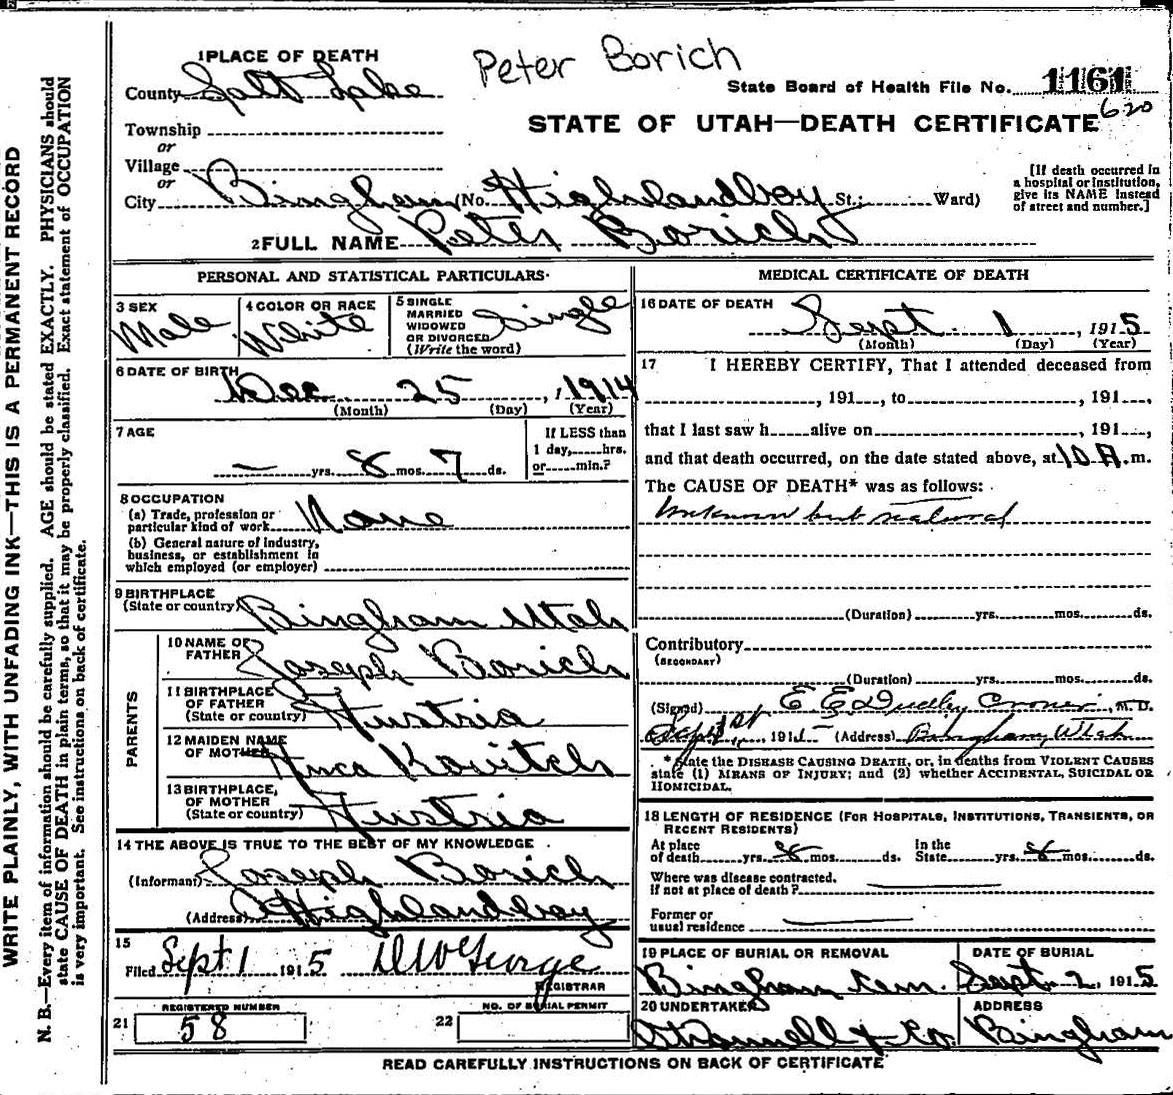 Peter Borich
1 PLACE OF DEATH
County Salt Lake
State Board of Health File No. 1161
620
STATE OF UTAH—DEATH CERTIFICATE
Township
or
Village
or
City Bingham (No. Highlandboy St.; Ward)
[If death occurred in
a hospital or institution,
give its NAME instead
of street and number.]
2 FULL NAME Peter Borich
PERSONAL AND STATISTICAL PARTICULARS
3 SEX
Male
4 COLOR OR RACE
White
5 SINGLE
MARRIED
WIDOWED
OR DIVORCED
(Write the word)
Single
6 DATE OF BIRTH
Dec 25, 1914
(Month) (Day) (Year)
7 AGE
— yrs. 8 mos. 7 ds.
If LESS than
1 day, hrs.
or min.?
8 OCCUPATION
(a) Trade, profession or
particular kind of work None
(b) General nature of industry,
business, or establishment in
which employed (or employer)
9 BIRTHPLACE
(State or country) Bingham Utah
PARENTS
10 NAME OF
FATHER Joseph Borich
11 BIRTHPLACE
OF FATHER
(State or country) Austria
12 MAIDEN NAME
OF MOTHER Kovitch
13 BIRTHPLACE
OF MOTHER
(State or country) Austria
14 THE ABOVE IS TRUE TO THE BEST OF MY KNOWLEDGE
(Informant) Joseph Borich
(Address) Highlandboy
15
Filed Sept 1 1915
REGISTRAR
21 REGISTERED NUMBER
58
22 NO. OF BURIAL PERMIT
MEDICAL CERTIFICATE OF DEATH
16 DATE OF DEATH
Sept. 1, 1915
(Month) (Day) (Year)
17 I HEREBY CERTIFY, That I attended deceased from
, 191 , to , 191 ,
that I last saw h alive on , 191 ,
and that death occurred, on the date stated above, at 10 A. m.
The CAUSE OF DEATH* was as follows:
Unknown but natural
(Duration) yrs. mos. ds.
Contributory
(SECONDARY)
(Duration) yrs. mos. ds.
(Signed) E E Dudley Croner M. D.
Sept 1st, 1915 (Address) Bingham, Utah
* State the DISEASE CAUSING DEATH, or, in deaths from VIOLENT CAUSES
state (1) MEANS OF INJURY; and (2) whether ACCIDENTAL, SUICIDAL OR
HOMICIDAL.
18 LENGTH OF RESIDENCE (FOR HOSPITALS, INSTITUTIONS, TRANSIENTS, OR
RECENT RESIDENTS)
At place
of death yrs. 8 mos. ds.
In the
State yrs. 8 mos. ds.
Where was disease contracted,
if not at place of death?
Former or
usual residence
19 PLACE OF BURIAL OR REMOVAL
Bingham Cem.
DATE OF BURIAL
Sept. 2, 1915
20 UNDERTAKER
& Co.
ADDRESS
Bingham
READ CAREFULLY INSTRUCTIONS ON BACK OF CERTIFICATE
WRITE PLAINLY, WITH UNFADING INK—THIS IS A PERMANENT RECORD
N. B.—Every item of information should be carefully supplied. AGE should be stated EXACTLY. PHYSICIANS should
state CAUSE OF DEATH in plain terms, so that it may be properly classified. Exact statement of OCCUPATION
is very important. See instructions on back of certificate.